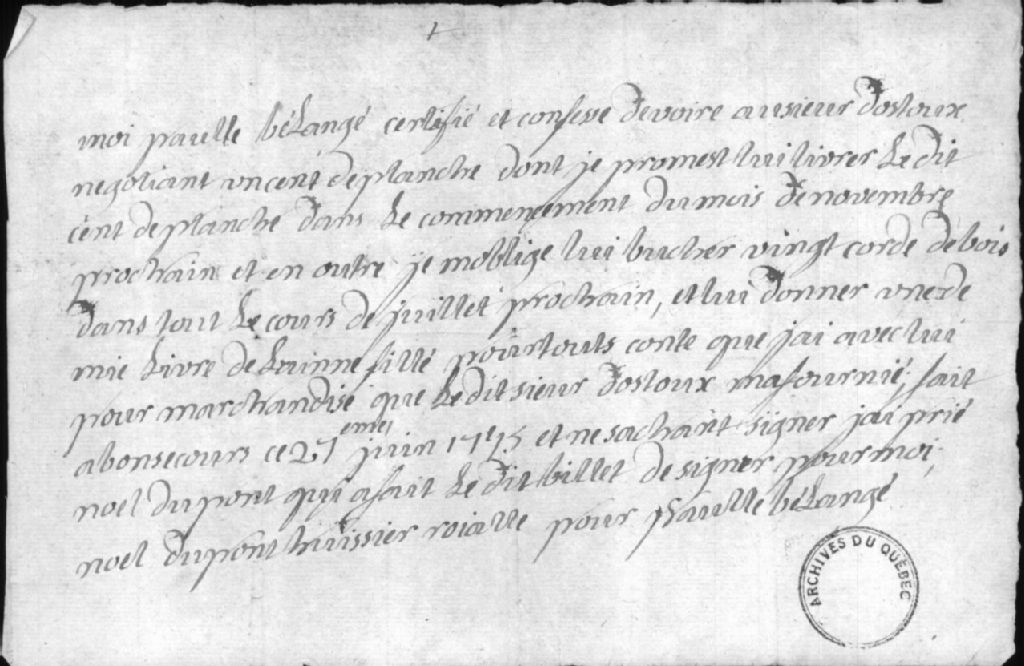 moi paulle béLangé certifié et confesse devoire ausieur dostoux
negotiant un cent de planche dont je promest lui livrer Le dit
cent de planche dans Le commencement du mois de novembre
prochain et en outre je moblige lui bucher vingt corde de bois
dans tout Le cours de juillet prochain, et lui donner une de
mie Livre de Lainne fillé pour touts conte que jai avec lui
pour marchandise que Ledit sieur dostoux ma fournië, fait
a bonsecours ce 27 eme juin et ne sachant signer jai prié
noel dupont qui a fait Le dit billet de signer pour moi,
noel dupont huissier roialle pour paulle béLangé
ARCHIVES DU QUÉBEC